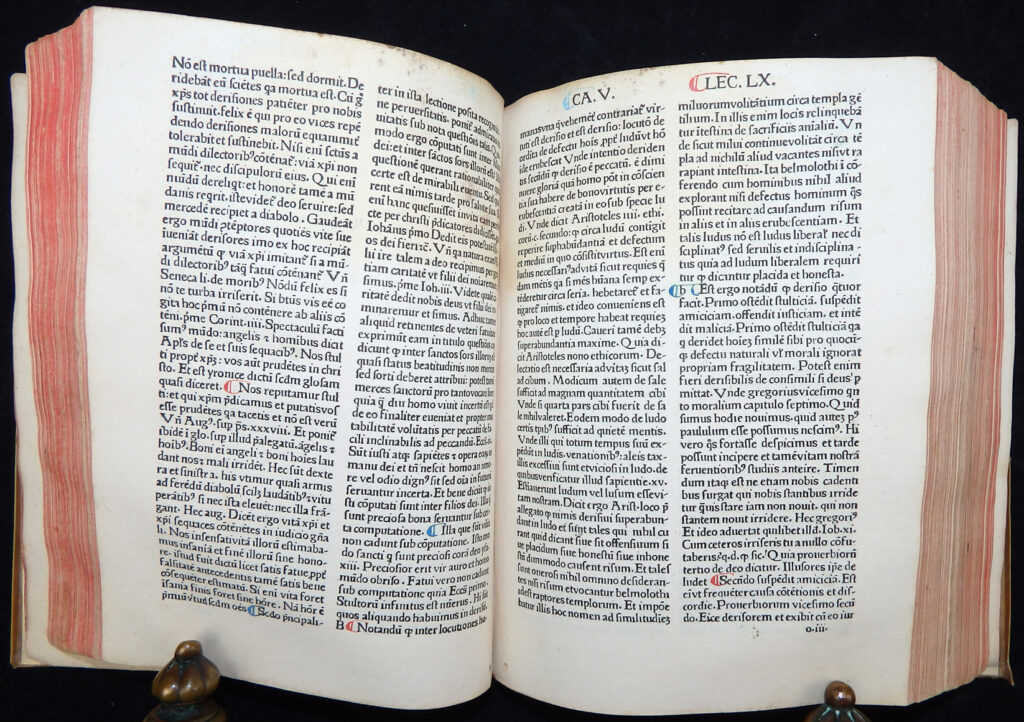 Nō est mortua puella: sed dormit. De
ridebāt eū sciētes qa mortua est. Cū g̃
xp̄s tot derisiones patiēter pro nobis
sustinuit. felix ē qui pro eo vices repē
dendo derisiones malorū equanimit̃
tolerabit et sustinebit. Nisi eni sctūs a
mūdi dilectoribꝰ cōtēnat̃: viā xpi non
sequit̃. nec discipulorū eius. Qui eni
mūdū dereliqt: et honorē
mercedē recipiet a diabolo. Gaudeāt
ergo mūdi
iueniāt derisores imo ex hoc recipiāt
argumētū
di dilectoribꝰ tāq̃ fatui cōtēnant̃
Seneca li. de moribꝰ Nōdū felix es si
nō te turba irriserit. Si btūs vis eē co
gita hoc pmū nō contēnere ab aliis cō
tēni. pme Corint. iiii. Spectaculū facti
sumꝰ mūdo: angelis ⁊ hominibꝰ dicit
Apls de se et suis sequacibꝰ. Nos stul
ti propt̃ xp̄ꝫ: vos aut̄ prudētes in chri
sto. Et est yronice dictū scdm glosam
quasi diceret. Nos reputamur stul
ti: et qui xpm pdicamus et putatis vos
esse prudētes qa tacetis et nō est verū
Vñ Augꝰ. sup ps. xxxviii. Et ponit̃
ibidē i glo. sup illud
hoibꝰ. Boni ei angeli ⁊ boni hoies lau
dant nos ⁊ mali irridēt. Hec sūt dexte
ra et sinistra. his vtimur quasi armis
ad ferēdū diabolū
si nec ista eleuēt: nec illa frā
gant. Hec aug. Dicēt ergo vitā xpi et
xpi sequaces cōtēnētes in iudicio
li. Nos insensati vitā illorū estimaba-
mus insaniā et finē illorū sine hono-
re. istud fuit dictū licet satis fatue
falsitate antecedentis tamē satis bene
cōsequēter estimatū. Si eni vita foret
isania finis foret sine hōre. Nā hōr ē
pmiū v̄tutis scdm oēs Scdo pncipali-
ter in ista lectione posita recogna
ne peruersitatis. ponit̃ admiratiua
modo ergo cōputati sunt inter filios
dei: et inter sāctos sors illorū est
certe est de mirabili
cte per christi pdicatores
Iohānis pmo Dedit eis potestatē
os dei fieri
lū ire talem a deo recipimus
tiam caritatē vt filii dei noiaremur
et simus. pme Ioh. iii. Videte
ritatē dedit nobis deus vt filii dei no
minaremur et simus. Adhuc
aliquid retinentes
exprimūt eam in titulo
dicunt ꝙ inter sanctos sors
quasi status beatitudinis non
sed sorti deberet attribui:
merces sanctorū pro tanto vocari
homo viuit incertū est
de eo finaliter eueniat et propter mu
tabilitatē volūtatis per peccati fa-
cili inclinabilis ad peccandū.
Sūt iusti atqꝫ sapiētes ⁊ opera
manu dei et tn̄ nescit homo an amo-
re vel odio dignꝰ sit sed oīa in futurū
seruantur incerta. Et bene dicit̃
stū cōputati sunt inter filios dei.
sunt preciosa bona seruantur
ta computatione. Illa que sūt vilia
non cadunt sub cōputatione. Isto mo
do sancti q̃ sunt preciosi corā deo
xiii. Preciosior erit vir auro et homo
mūdo obriso. Fatui vero non cadunt
sub computatione quia
Stultorū infinitus est nūerus. Hi sūt
quos aliquando habuimus in
B Notandū ꝙ inter locutiones hu-
CA. V.
manas vna q̃ vehemēter contrariat̃ vir-
tuti est derisio et est derisio: locutō de
ridita de defectu
erubescat Vnde intentio deriden
do secundū quod derisio ē peccatū. ē dimi
nuere gloriā quā homo pōt in cōscien
tia sua habere de bono virtutis per e-
rubescentiā creatā in eo sub specie lu
di. Vnde dicit Aristoteles iiii. ethi.
corū. c. secundo: ꝙ circa ludū contigit
reperire suphabūdantiā et defectum
et mediū in quo cōsistit virtus. Est eni
ludus necessariꝰ ad vitā sicut requies
dam mētis qa si mēs hūana semp ex-
tēderetur circa seria. hebetaret̃ et fa-
tigaret̃ nimis. et ideo conueniens est
ꝙ pro loco et tempore habeat requiez
hoc autē est p ludū. Caueri tamē debꝫ
superabundantia maxime. Quia di-
cit Aristoteles nono ethicorum. De-
lectatio est necessaria ad vitā sicut sal
ad cibum. Modicum autem de sale
sufficit ad magnam quantitatem cibi
Vnde si quarta pars cibi fuerit de sa
le nihil valeret. Eodem modo de ludo
certis tpibꝰ sufficit ad quietē mentis.
Vnde illi qui totum tempus suū ex-
pēdūt in ludis. venationibꝰ: aleis tax-
illis excessiui sunt et viciosi in ludo. de
quibus verificatur illud sapientie. xv.
Estiauerunt ludum vel lusum esse vi-
tam nostram. Dicit ergo Arist. loco p
allegato ꝙ nimis derisiui superabun-
dant in ludo et sunt tales qui nihil cu
rant quid dicant siue sit offensiuum si
ue placidum siue honestū siue inhone
stū dummodo causent risum. Et tales
sunt onerosi nihil omnino desideran-
tes nisi risum et vocantur belmolothi
idest raptores templorum. Et impōe
batur illis hoc nomen ad similitudieꝫ
LEC. LX.
miluorum volātium circa templa gē
tilium. In illis enim locis relinquebā
tur itestina de sacrificiis aīaliū. Vn
de sicut milui continue volitāt circa tē
pla ad nichil aliud vacantes nisi vt ra
rapiant intestina. Ita belmolothi i cō
ferendo cum hominibus nihil aliud
explorant nisi defectus hominum q̄s
possint recitare ad causandum risum
in aliis et in aliis erubescentiam. Et
talis ludus nō est ludus liberal̃ nec di
sciplinatꝰ sed seruilis et indisciplina-
tus quia ad ludum liberalem requiri
tur ꝙ dicantur placida et honesta.
b Est ergo notādū ꝙ derisio q̄tuor
facit. Primo ostēdit stulticiā. suspēdit
amiciciam. offendit iusticiam. et intē
dit maliciā. Primo ostēdit stulticiā qa
qui deridet hoieꝫ similē sibi pro quocū-
qꝫ defectu naturali vl̃ morali ignorat
propriam fragilitatem. Potest enim
fieri derisibilis de consimili si deusꝰ p
mittat. Vnde gregorius vicesimo qn
to moralium capitulo septimo. Quid
sumus hodie nouimus. quid autē pꝰ
paululum esse possumus nescimꝰ. Hi
vero q̄s fortasse despicimus et tarde
possunt incipere et tamē vitam nostrā
feruentioribꝰ studiis anteire. Timen
dum itaqꝫ est ne etiam nobis cadenti
bus surgat qui nobis stantibus irride
tur quis stare iam non nouit. qui non
stantem nouit irridere. Hec gregoriꝰ
Et ideo aduertat quilibet illd. Iob. xi.
Cum ceteros irriseris tu a nullo cōfu-
taberis: q. d. ꝙ sic. Quia prouerbiorū
tertio de deo dicitur. Illusores ipse de
ludet Secūdo suspēdit amiciciā. Est
ei vt frequēter causa cōtētionis et dis-
cordie. Prouerbiorum vicesimo secū
do. Eiice derisorem et exibit cū eo iur
o. iii.